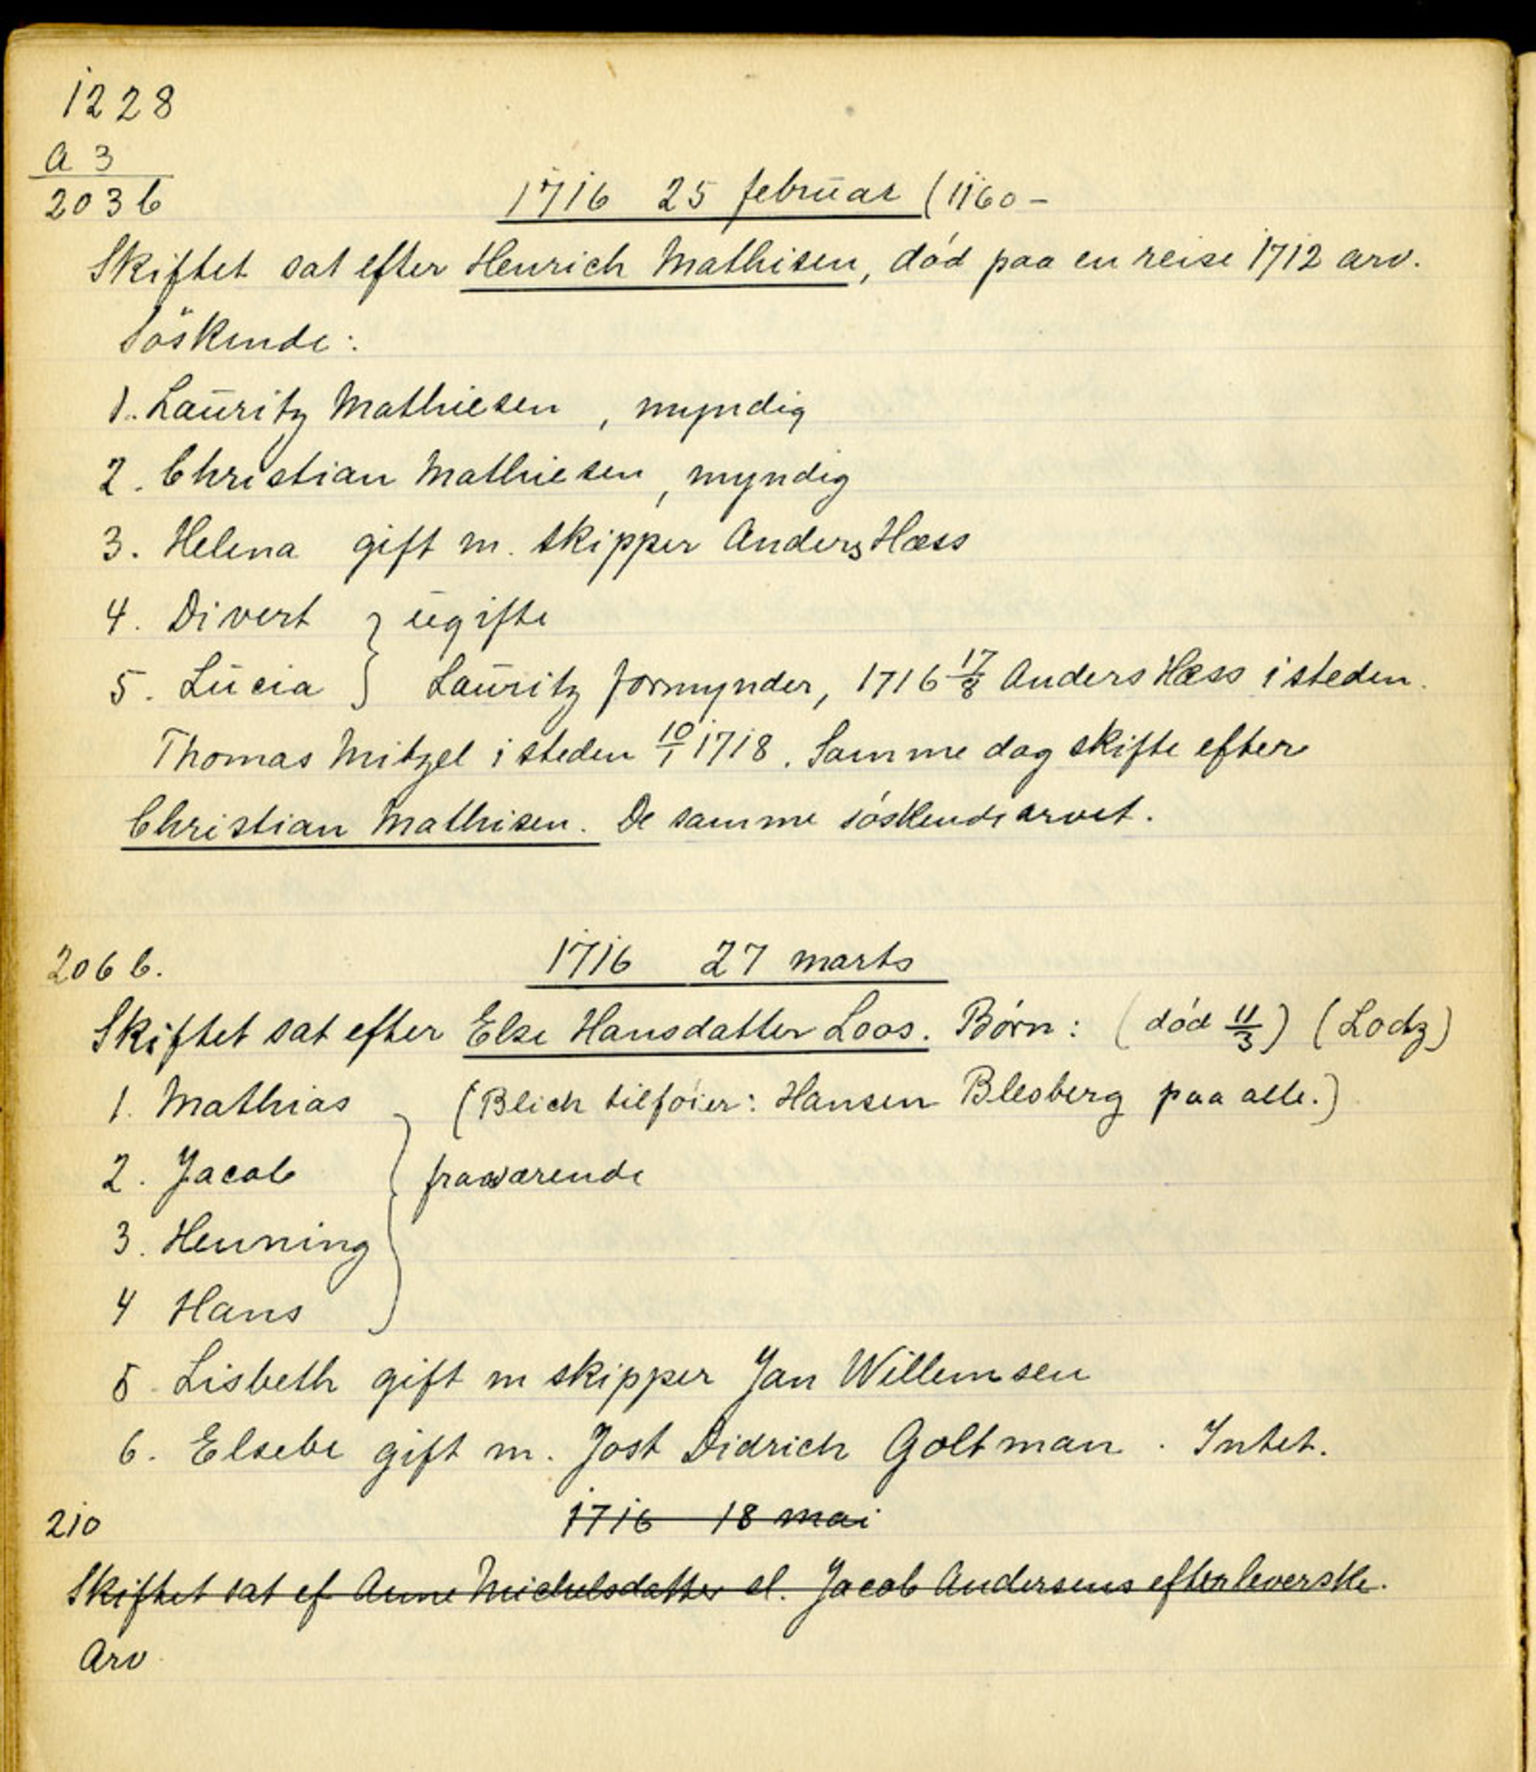 1228
A 3
203 b
1716 25 februar (1160 -
Skiftet sat efter Henrich Mathisen, død paa en reise 1712 arv.
Söskende:
1. Lauritz Mathiesen , myndig
2. Christian Mathiesen, myndig
3. Helena gift m. skipper Anders Hæss
4. Divert } ugifte
5. Lucia } Lauritz formynder, 1716 17/8 Anders Hæss isteden.
Thomas Mitzel isteden 10/1 1718. Samme dag skifte efter
Christian Mathisen. De samme søskende arvet.
206 b. 1716 27 marts
Skiftet sat efter Else Hansdatter Loos. Børn: (død 11/3) (Lodtz)
1. Mathias (Blich tilføier: Hansen Blesberg paa alle.)
2. Jacob } fraværende
3. Henning
4 Hans
5 Lisbeth gift m skipper Jan Willemsen
6. Elsebe gift m. Jost Didrich Goltman. Intet.
210 1716 18 mai
Skiftet sat ef Anne Michelsdatter sl. Jacob Andersens efterleverske.
Arv